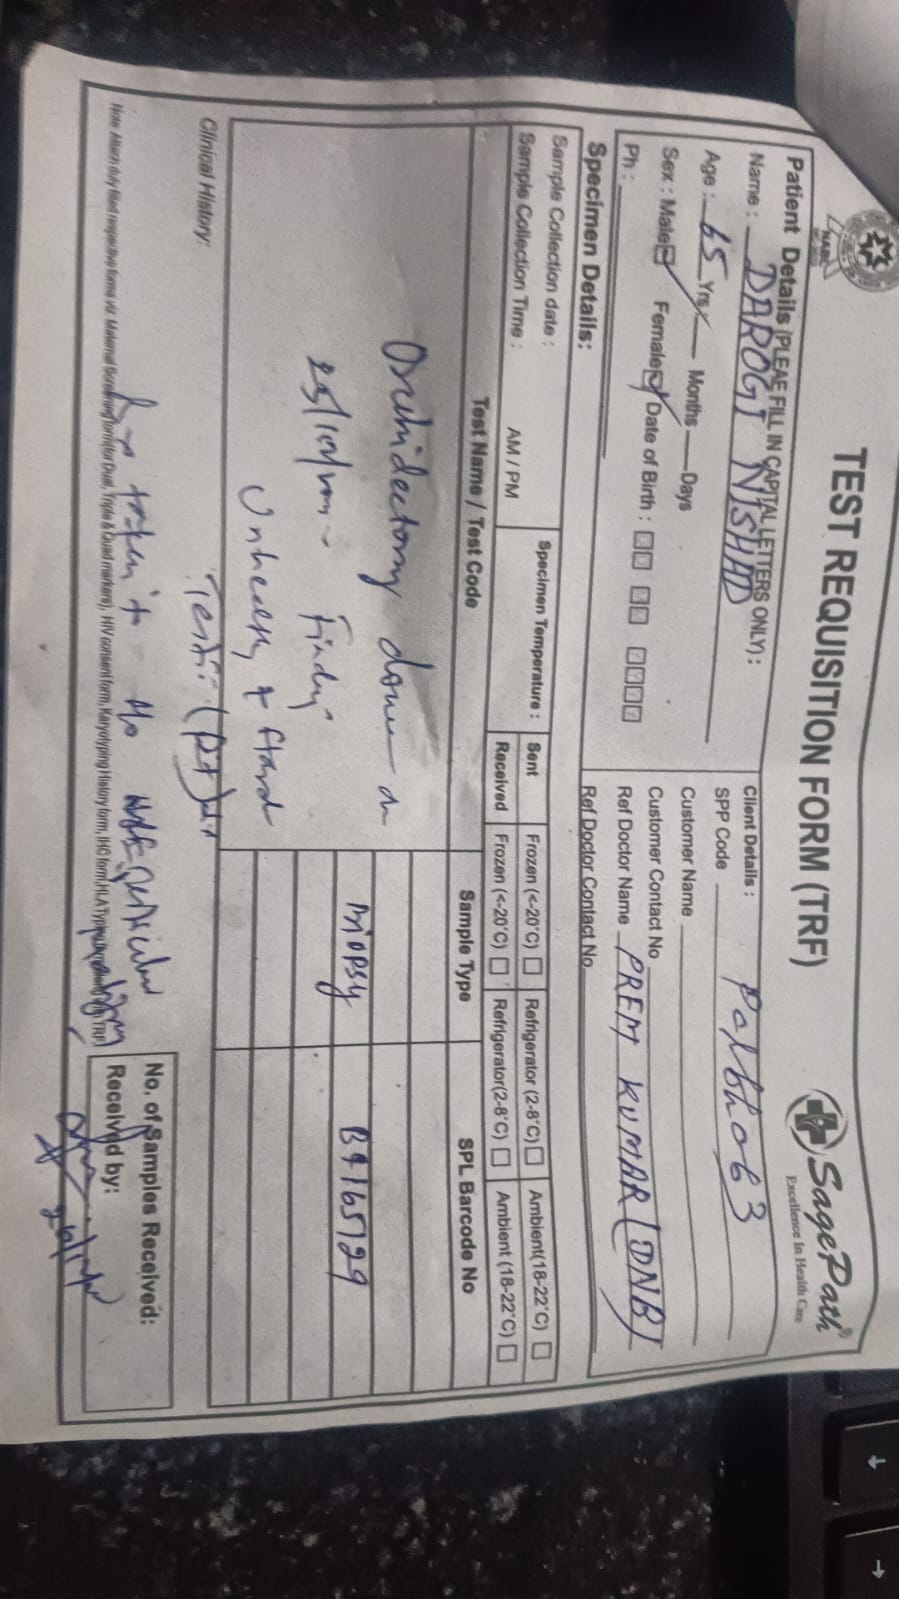 TEST REQUISITION FORM (TRF)
SagePath®
Excellence In Health Care
NABL
Patient Details (PLEAE FILL IN CAPITAL LETTERS ONLY) :
Name : DAROGI NISHAD
Age : 65 Yrs Months Days
Sex : Male Female Date of Birth :
Ph :
Client Details :
SPP Code
Customer Name
Customer Contact No
Ref Doctor Name PREM KUMAR (DNB)
Ref Doctor Contact No
Specimen Details:
Sample Collection date :
Sample Collection Time : AM / PM
Specimen Temperature :
Sent Frozen (<-20°C) Refrigerator (2-8°C) Ambient(18-22°C)
Received Frozen (<-20°C) Refrigerator(2-8°C) Ambient (18-22°C)
Test Name / Test Code Sample Type SPL Barcode No
Orchidectomy done on
Finding
Biopsy B4165729
Unhealthy & Hard
Testi (Rt)
Clinical History:
No. of Samples Received:
Received by:
Note: Attach duly filled respective forms viz. Maternal Screening form (for Dual, Triple & Quad markers), HIV consent form, Karyotyping History form, IHC form, HLA Typing TRF